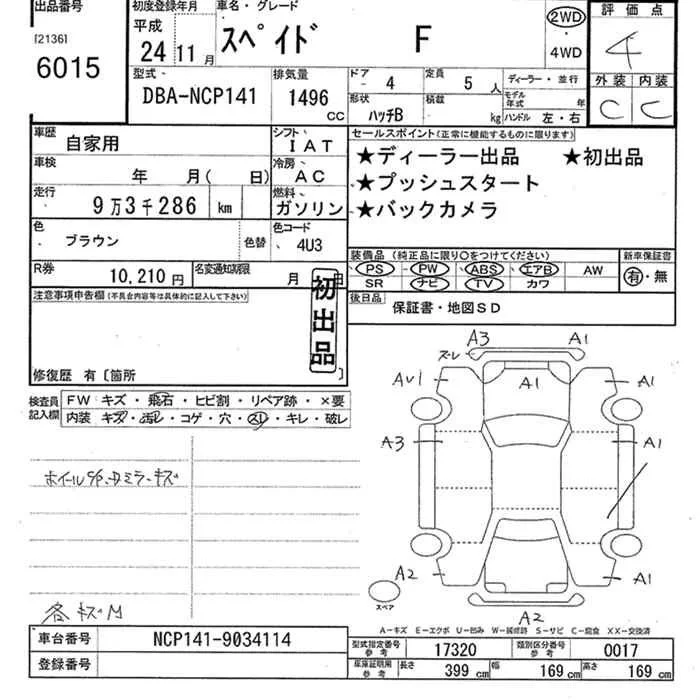 出品番号
[2136]
6015
初度登録年月
平成
24 11月
車名・グレード
スペイド F
2WD
・
4WD
評価点
4
外装 内装
C C
型式
DBA-NCP141
排気量
1496
CC
ドア 4
定員 5人
形状 ハッチB
積載 kg
ディーラー・並行
モデル年式 年
ハンドル 左・右
車歴 自家用
シフト IAT
車検 年 月( 日)
冷房 AC
走行 9万3千286 km
燃料 ガソリン
色 ブラウン 色替
色コード 4U3
R券 10,210円
名変通知期限 月 日
セールスポイント(正常に機能するものに限ります)
★ディーラー出品 ★初出品
★プッシュスタート
★バックカメラ
装備品(純正品に限り○をつけてください)
PS PW ABS エアB AW
SR ナビ TV カワ
新車保証書
有・無
後日品 保証書・地図SD
注意事項申告欄(不具合内容等は具体的に記入して下さい)
初出品
修復歴 有〔箇所 〕
検査員記入欄
FW キズ・飛石・ヒビ割・リペア跡・×要
内装 キズ・汚レ・コゲ・穴・スリ・キレ・破レ
各キズM
A3 A1
スレ
AU1 A1 A1
A3 A1
A2 A1
A2
スペア
A-キズ E-エクボ U-凹み W-補修跡 S-サビ C-腐食 XX-交換済
車台番号 NCP141-9034114
登録番号
型式指定番号参考 17320
類別区分番号参考 0017
車庫証明用参考
長さ 399cm 幅 169cm 高さ 169cm